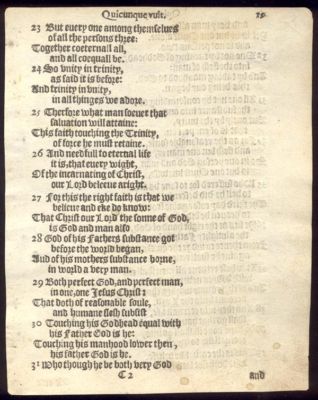 Quicunque vult. 15
23 But euery one among themselues
of all the persons three:
Together coeternall all,
and all coequall be.
24 So vnity in trinity,
as said it is before:
And trinity in vnity,
in all things we adore.
25 Therfore what man soeuer that
saluation will attaine:
This faith touching the Trinity,
of force he must retaine.
26 And needfull to eternal life
it is, that euery wight,
Of the incarnating of Christ,
our Lord beleeue aright.
27 For this the right faith is that we
belieue and eke do know:
That Christ our Lord the sonne of God,
is God and man also
28 God of his Fathers substance got
before the world began,
And of his mothers substance borne,
in world a very man.
29 Both perfect God, and perfect man,
in one, one Jesus Christ:
That doth of reasonable soule,
and humane flesh subsist
30 Touching his Godhead equal with
his Father God is he:
Touching his manhood lower then,
his father God is he.
31 Who though he be both very God
C 2 and